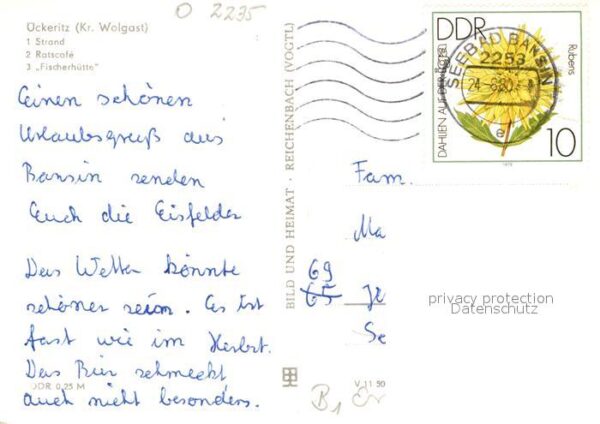 O 2235
Ückeritz (Kr. Wolgast)
1 Strand
2 Ratscafé
3 „Fischerhütte"
Einen schönen
Urlaubsgruß aus
Bansin senden
Euch die Eisfelder
Das Wetter könnte
schöner sein. Es ist
fast wie im Herbst.
Das Bier schmeckt
auch nicht besonders.
DDR 0,25 M
BILD UND HEIMAT · REICHENBACH (VOGTL)
V 11 50
DDR
DAHLIEN AUF DER
Rubens
10
1979
SEEBAD BANSIN
2253
Fam.
Ma
69
65
Se
privacy protection
Datenschutz